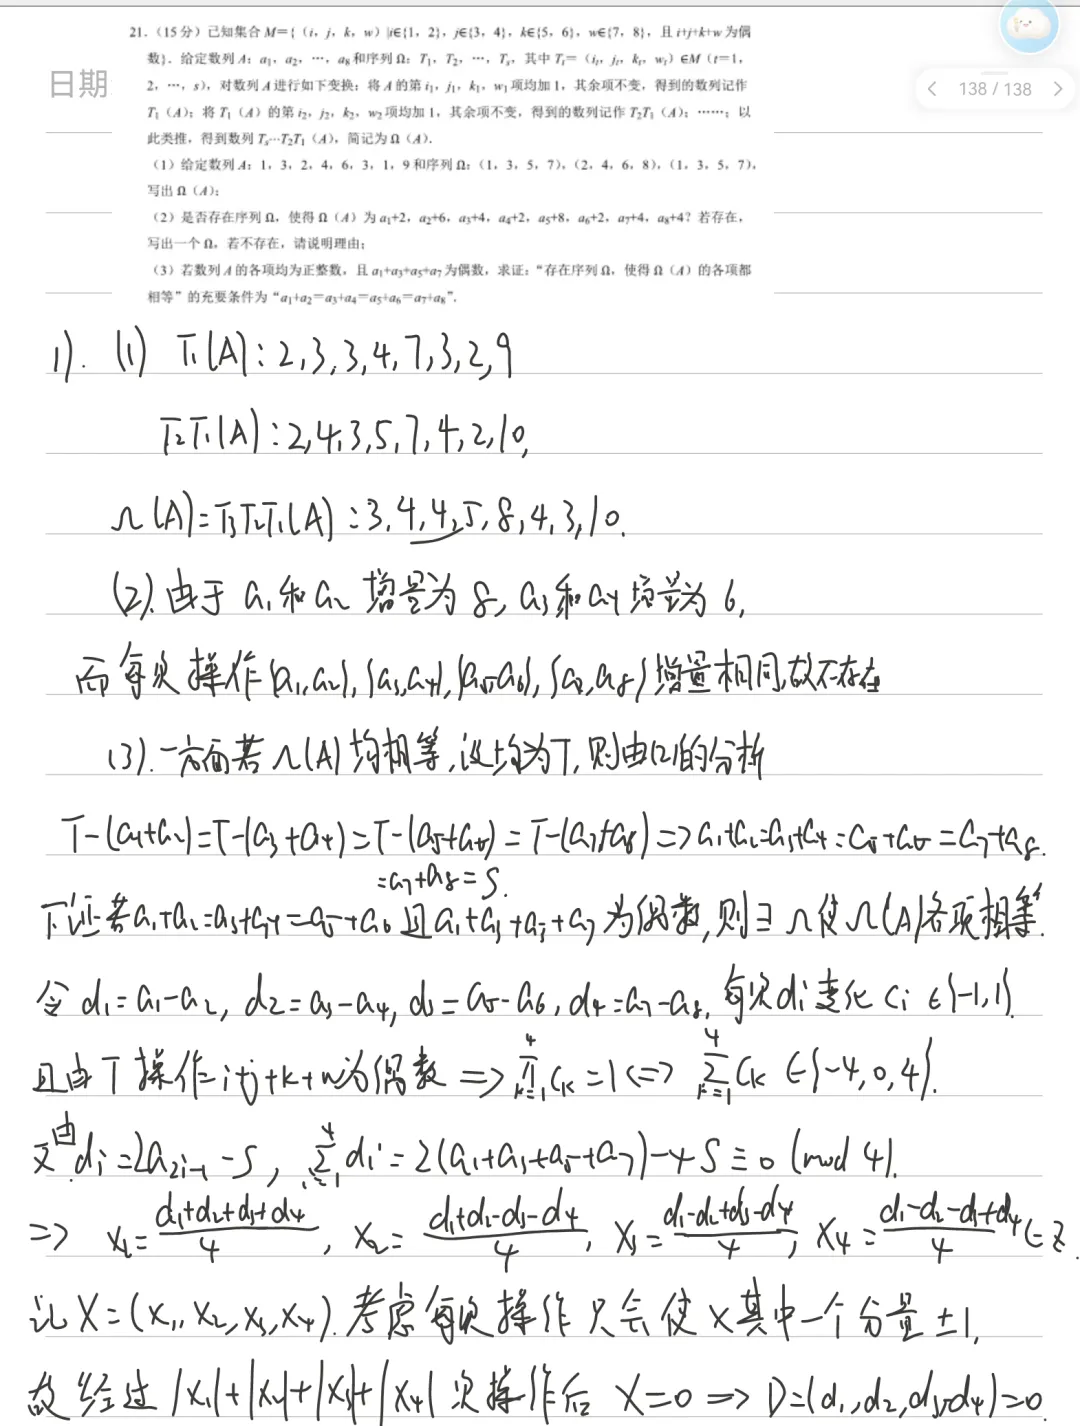 138 / 138
日期
21.（15分）已知集合M={（i，j，k，w）|i∈{1，2}，j∈{3，4}，k∈{5，6}，w∈{7，8}，且i+j+k+w为偶
数}．给定数列A：a₁，a₂，…，a₈和序列Ω：T₁，T₂，…，Tₛ，其中Tₜ=（iₜ，jₜ，kₜ，wₜ）∈M（t=1，
2，…，s），对数列A进行如下变换：将A的第i₁，j₁，k₁，w₁项均加1，其余项不变，得到的数列记作
T₁（A）；将T₁（A）的第i₂，j₂，k₂，w₂项均加1，其余项不变，得到的数列记作T₂T₁（A）；……；以
此类推，得到数列Tₛ…T₂T₁（A），简记为Ω（A）．
（1）给定数列A：1，3，2，4，6，3，1，9和序列Ω：（1，3，5，7），（2，4，6，8），（1，3，5，7），
写出Ω（A）；
（2）是否存在序列Ω，使得Ω（A）为a₁+2，a₂+6，a₃+4，a₄+2，a₅+8，a₆+2，a₇+4，a₈+4？若存在，
写出一个Ω，若不存在，请说明理由；
（3）若数列A的各项均为正整数，且a₁+a₃+a₅+a₇为偶数，求证：“存在序列Ω，使得Ω（A）的各项都
相等”的充要条件为“a₁+a₂=a₃+a₄=a₅+a₆=a₇+a₈”．
1). (1) T₁(A):2,3,3,4,7,3,2,9
T₂T₁(A):2,4,3,5,7,4,2,10,
Ω(A)=T₃T₂T₁(A):3,4,4,5,8,4,3,10.
(2).由于a₁和a₂增量为8,a₃和a₄增量为6,
而每次操作(a₁,a₂),(a₃,a₄),(a₅,a₆),(a₇,a₈)增量相同,故不存在
(3).一方面若Ω(A)均相等,设均为T,则由(2)的分析
T-(a₁+a₂)=T-(a₃+a₄)=T-(a₅+a₆)=T-(a₇+a₈)=>a₁+a₂=a₃+a₄=a₅+a₆=a₇+a₈.
=a₇+a₈=S.
下证若a₁+a₂=a₃+a₄=a₅+a₆且a₁+a₃+a₅+a₇为偶数,则∃Ω使Ω(A)各项相等.
令d₁=a₁-a₂, d₂=a₃-a₄, d₃=a₅-a₆, d₄=a₇-a₈. 每次di变化ci∈{-1,1}.
且由T操作i+j+k+w为偶数 => ∏_{k=1}^{4} Ck=1 <=> ∑_{k=1}^{4} Ck∈{-4,0,4}.
又由di=2a₂ᵢ₋₁-S, ∑_{i=1}^{4} di=2(a₁+a₃+a₅+a₇)-4S≡0 (mod 4).
=> x₁=(d₁+d₂+d₃+d₄)/4, x₂=(d₁+d₂-d₃-d₄)/4, x₃=(d₁-d₂+d₃-d₄)/4, x₄=(d₁-d₂-d₃+d₄)/4∈Z.
记X=(x₁,x₂,x₃,x₄).考虑每次操作只会使X其中一个分量±1,
故经过|x₁|+|x₂|+|x₃|+|x₄|次操作后 X=0 => D=(d₁,d₂,d₃,d₄)=0.